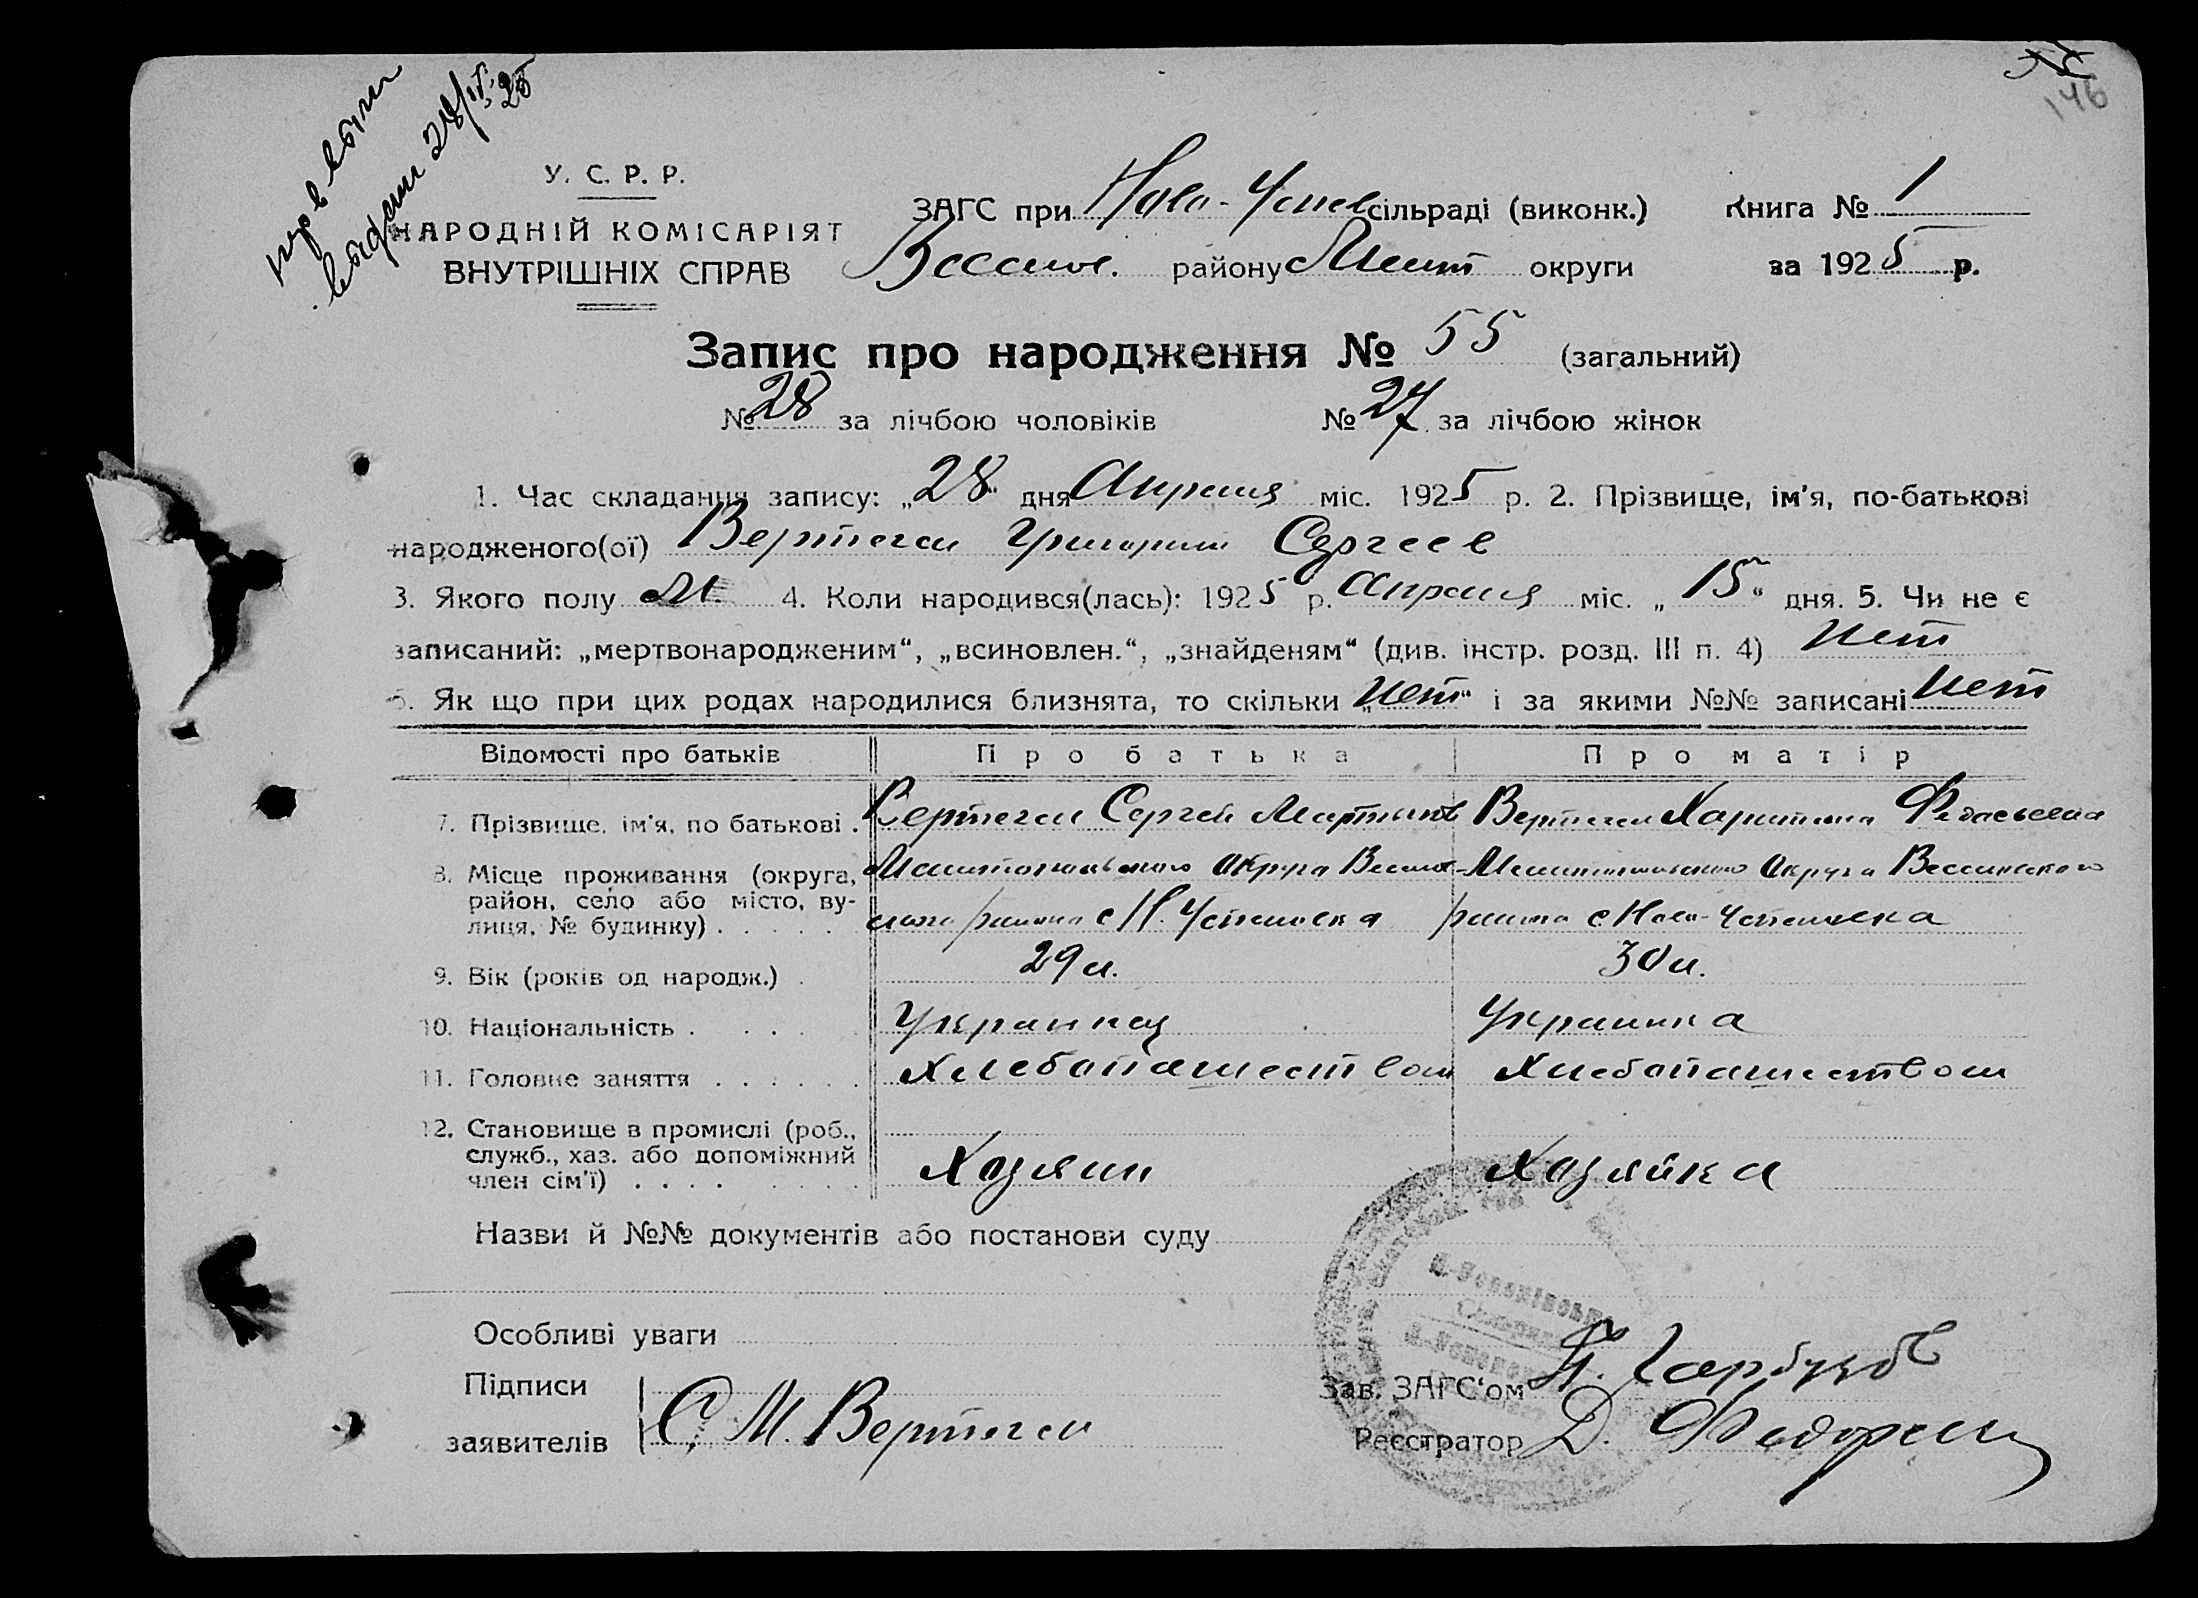 146
выписи
выдали 28/IV 25
У. С. Р. Р.
НАРОДНІЙ КОМІСАРІЯТ
ВНУТРІШНІХ СПРАВ
ЗАГС при Ново-Успен сільраді (виконк.) Книга № 1
Весел. району Мелит округи за 1925 р.
Запис про народження № 55 (загальний)
№ 28 за лічбою чоловіків № 27 за лічбою жінок
1. Час складання запису: „28“ дня Апреля міс. 1925 р. 2. Прізвище, ім'я, по-батькові
народженого(ої) Вертегел Григорий Сергеев
3. Якого полу М. 4. Коли народився(лась): 1925 р. Апреля міс. „15“ дня. 5. Чи не є
записаний: „мертвонародженим“, „всиновлен.“, „знайденям“ (див. інстр. розд. III п. 4) Нет
6. Як що при цих родах народилися близнята, то скільки „Нет“ і за якими №№ записані Нет
Відомості про батьків Про батька Про матір
7. Прізвище, ім'я, по батькові . Вертегел Сергей Мартынов Вертегел Харитина
8. Місце проживання (округа, район, село або місто, вулиця, № будинку) . . . . . Мелитопольского Округа Весело-
Мелитопольского Округа Веселовского
ского района с Н. Успеновка района с Ново-Успеновка
9. Вік (років од народж.) . 29 л. 30 л.
10. Національність . . . . Украинец Украинка
11. Головне заняття . . . . . . Хлебопашеством Хлебопашеством
12. Становище в промислі (роб., служб., хаз. або допоміжний член сім'ї) . . . . Хозяин Хозяйка
Назви й №№ документів або постанови суду
Особливі уваги
Підписи
заявителів С. М. Вертегел
Зав. ЗАГС'ом Гарбузов
Реєстратор Д. Федорец